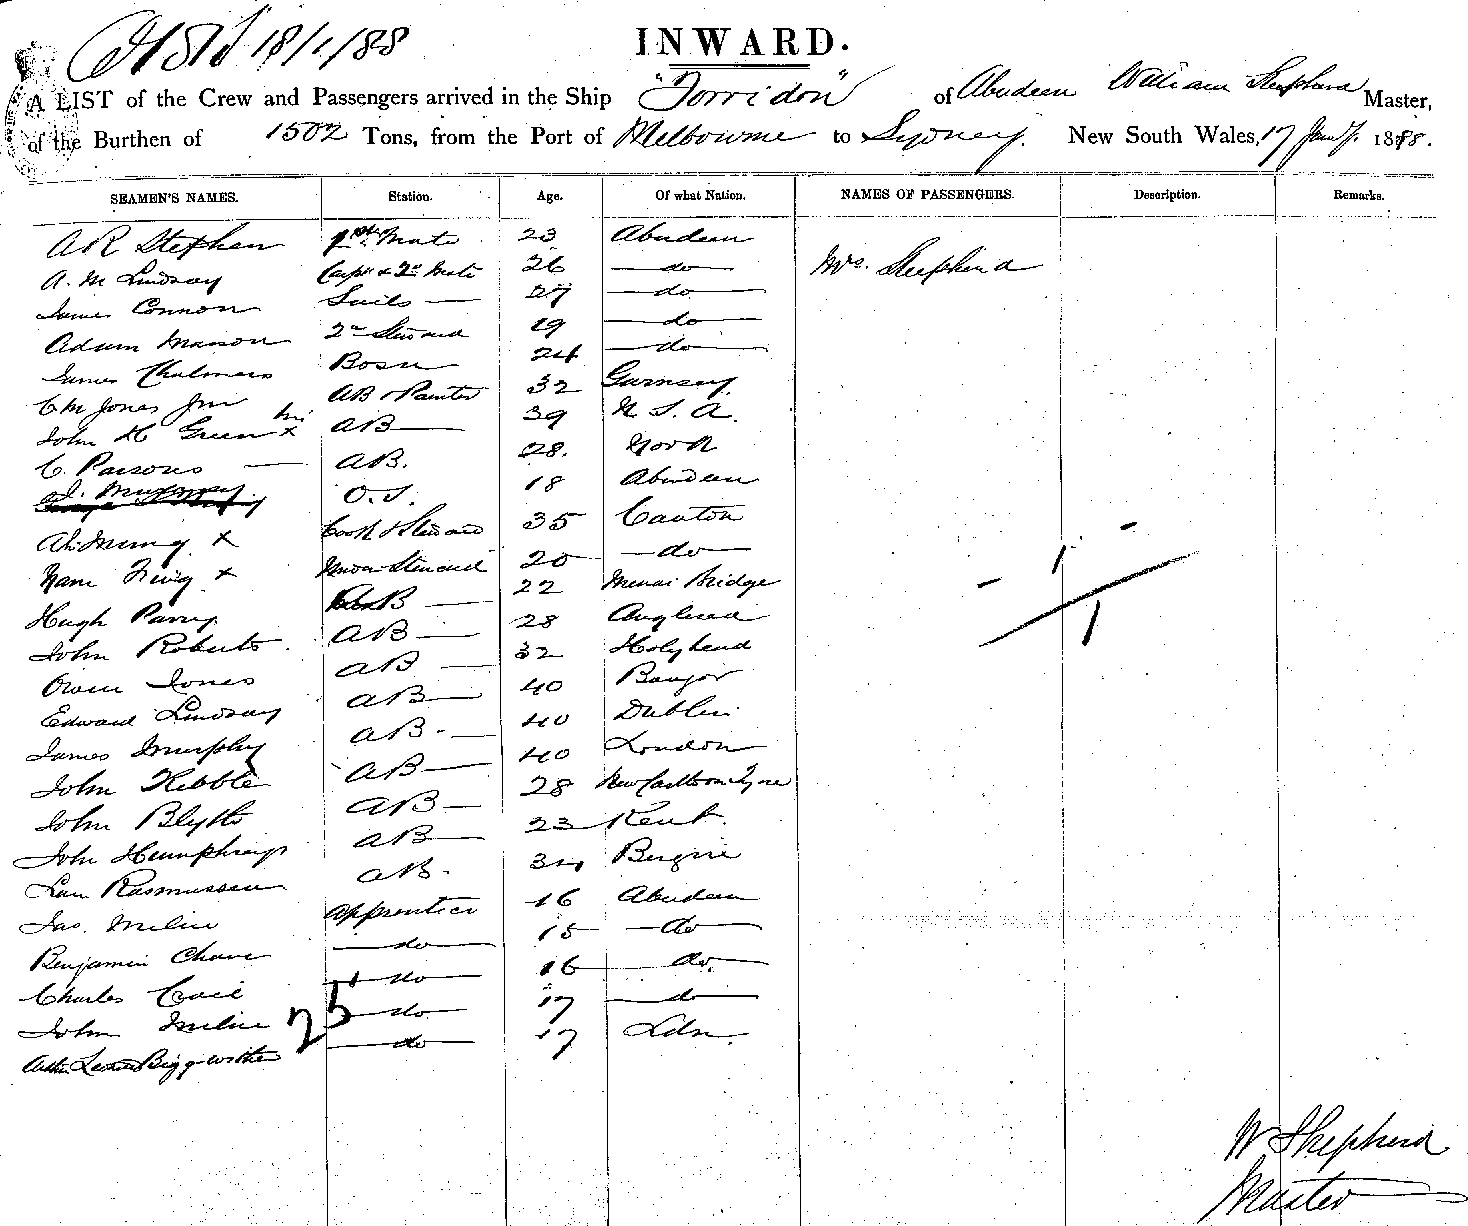 18/1/88
INWARD.
A LIST of the Crew and Passengers arrived in the Ship "Torridon" of Aberdeen William Shepherd Master,
of the Burthen of 1502 Tons, from the Port of Melbourne to Sydney. New South Wales, 17 Jany. 1888.
SEAMEN'S NAMES. Station. Age. Of what Nation. NAMES OF PASSENGERS. Description. Remarks.
A R Stephen 1st Mate 23 Aberdeen
A. M Lindsay Carpr & 2d Mate 26 do Mrs. Shepherd
James Connon Sails 27 do
Adam Manson 2nd Steward 19 do
James Chalmers Bosn 24 do
C M Jones Jnr AB & Painter 32 Gurnsey
John H Green x AB 39 U. S. A.
C. Parsons AB. 28. Norok
O. S. 18 Aberdeen
Ah Mung x Cook & Steward 35 Canton
Nam Hing x Steward 20 do
Hugh Parry AB 22 Menai Bridge
John Roberts AB 28 Anglesea
Owen Jones AB 32 Holyhead
Edward Lindsay AB 40 Bangor
James Murphy AB 40 Dublin
John Kebble AB 40 London
John Blyth AB 28 Newcastle on Tyne
John Humphreys AB 23 Kent
Lau Rasmussen AB. 34 Bergne
Jas. Milne Apprentice 16 Aberdeen
Benjamin Chave do 15 do
Charles Cail do 16 do.
John Milne do 17 do
Bigg-wither do 17 Ldn.
25
1
1
W Shepherd
Master